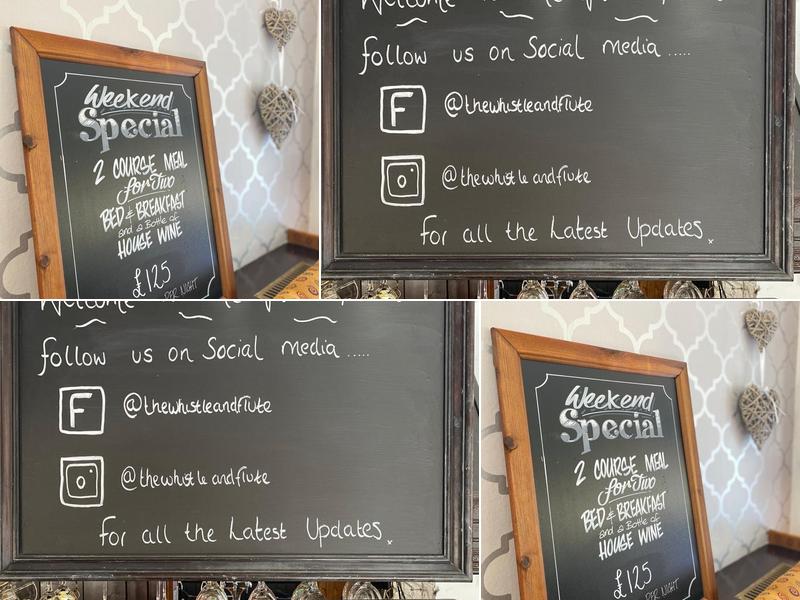 Weekend
Special
2 COURSE MEAL
for Two
BED & BREAKFAST
and a Bottle of
HOUSE WINE
£125
PER NIGHT
Welcome
follow us on Social media .....
F @thewhistleandflute
@thewhistleandflute
for all the Latest Updates. x
Welcome
follow us on Social media .....
F @thewhistleandflute
@thewhistleandflute
for all the Latest Updates. x
Weekend
Special
2 COURSE MEAL
for Two
BED & BREAKFAST
and a Bottle of
HOUSE WINE
£125
PER NIGHT